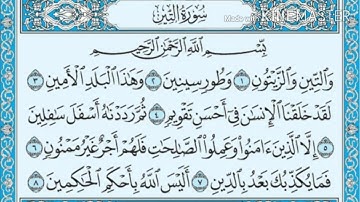 سُورَةُ التِّينِ
Made with KINEMASTER
بِسْمِ اللَّهِ الرَّحْمَٰنِ الرَّحِيمِ
وَالتِّينِ وَالزَّيْتُونِ ١ وَطُورِ سِينِينَ ٢ وَهَٰذَا الْبَلَدِ الْأَمِينِ ٣
لَقَدْ خَلَقْنَا الْإِنسَٰنَ فِي أَحْسَنِ تَقْوِيمٍ ٤ ثُمَّ رَدَدْنَٰهُ أَسْفَلَ سَٰفِلِينَ
٥ إِلَّا الَّذِينَ ءَامَنُوا وَعَمِلُوا الصَّٰلِحَٰتِ فَلَهُمْ أَجْرٌ غَيْرُ مَمْنُونٍ ٦
فَمَا يُكَذِّبُكَ بَعْدُ بِالدِّينِ ٧ أَلَيْسَ اللَّهُ بِأَحْكَمِ الْحَٰكِمِينَ ٨